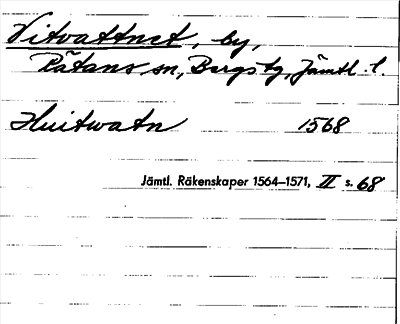 Vitvattnet, by,
Rätans sn, Bergs tg, Jämtl. l.
Huitwatn 1568
Jämtl. Räkenskaper 1564–1571, II s. 68